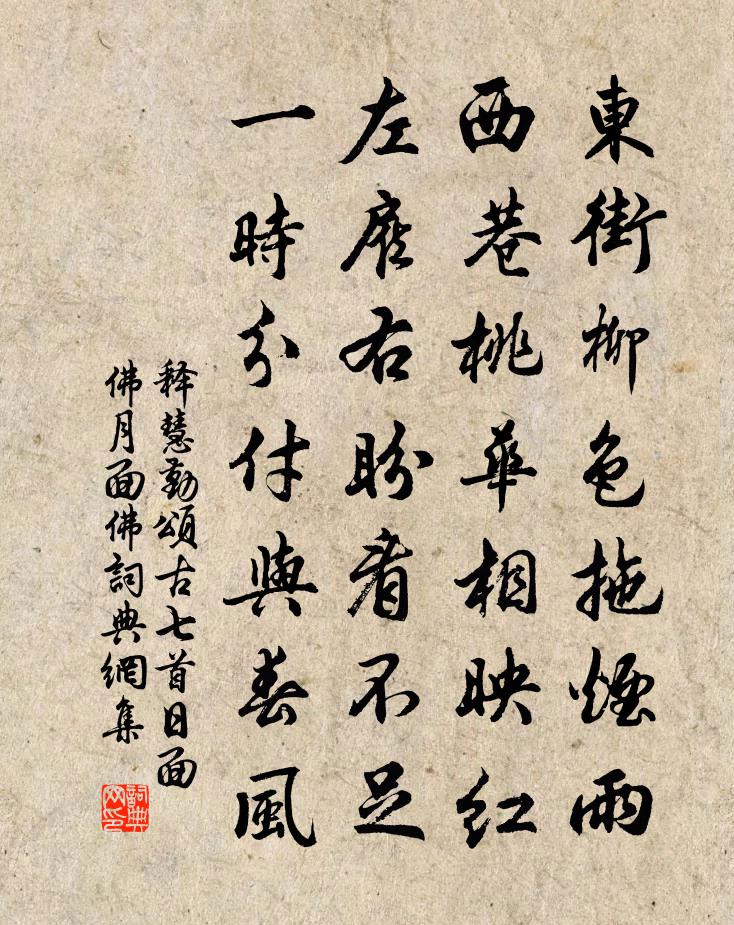 東街柳色拖煙雨
西巷桃華相映紅
左顧右盼看不足
一時分付與春風
释慧勤頌古七首日面
佛月面佛詞典網集
詞典网印